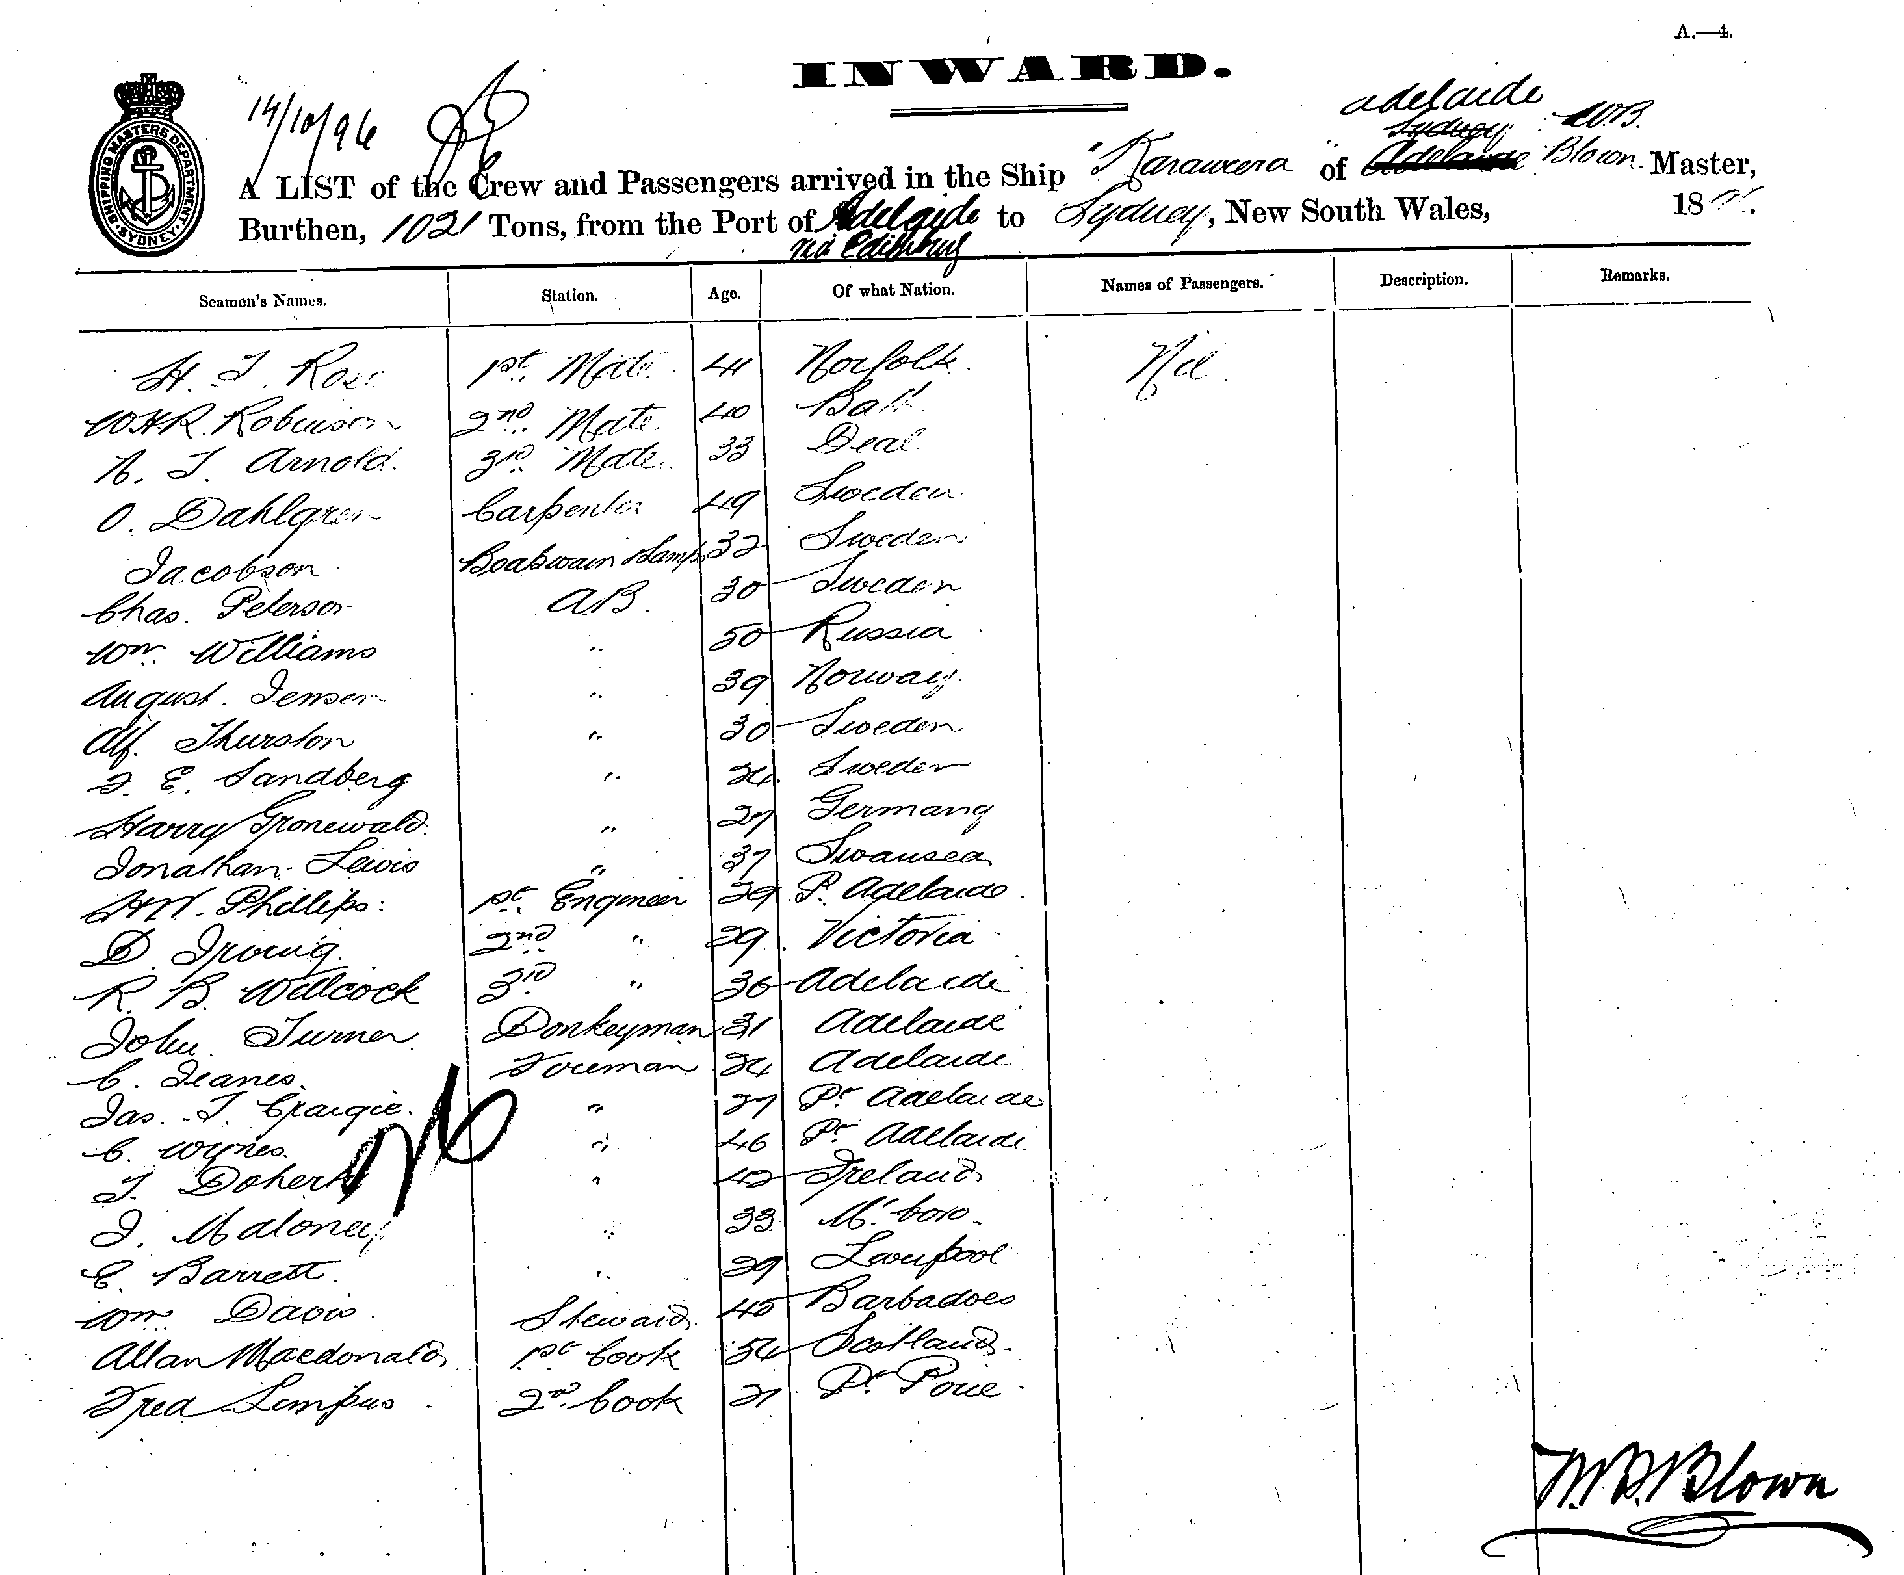 A.—4.
INWARD.
14/10/96
SHIPPING MASTERS DEPARTMENT SYDNEY
Adelaide
Sydney W.B.
A LIST of the Crew and Passengers arrived in the Ship "Karaweera" of Adelaide Blown Master,
Burthen, 1021 Tons, from the Port of Adelaide to Sydney, New South Wales, 18
via
Seamen's Names. Station. Age. Of what Nation. Names of Passengers. Description. Remarks.
H. J. Rose 1st. Mate 41 Norfolk. Nil.
W H R. Robinson 2nd. Mate 40
A. J. Arnold. 3rd. Mate 33 Deal
O. Dahlgren Carpenter 49 Sweden
Jacobson Boatswain & Lamps 32 Sweden
Chas. Peterson AB. 30 Sweden
Wm. Williams " 50 Russia
August. Jensen " 39 Norway.
Alf. Thurston " 30 Sweden
F. E. Sandberg " Sweden
Harry Gronewald. " 27 Germany
Jonathan Lewis " 37 Swansea
H W. Phillips. 1st. Engineer 29 P. Adelaide
D. Irwig. 2nd " 29 Victoria
R. B. Willcock 3rd " 36 Adelaide
John Turner Donkeyman 31 Adelaide
C. Jeanes. Fireman 24 Adelaide
Jas. T. Craigie. " 27 Pt Adelaide
C. Wynes. " 46 Pt. Adelaide
J. Doherty " 42 Ireland
J. Maloney " 33
E. Barrett. " 29 Liverpool
Wm Davis Steward 45 Barbadoes
Allan Macdonald 1st Cook 54 Scotland.
Fred Lempus 2nd. Cook 21 Pt. Pirie
W. B. Blown